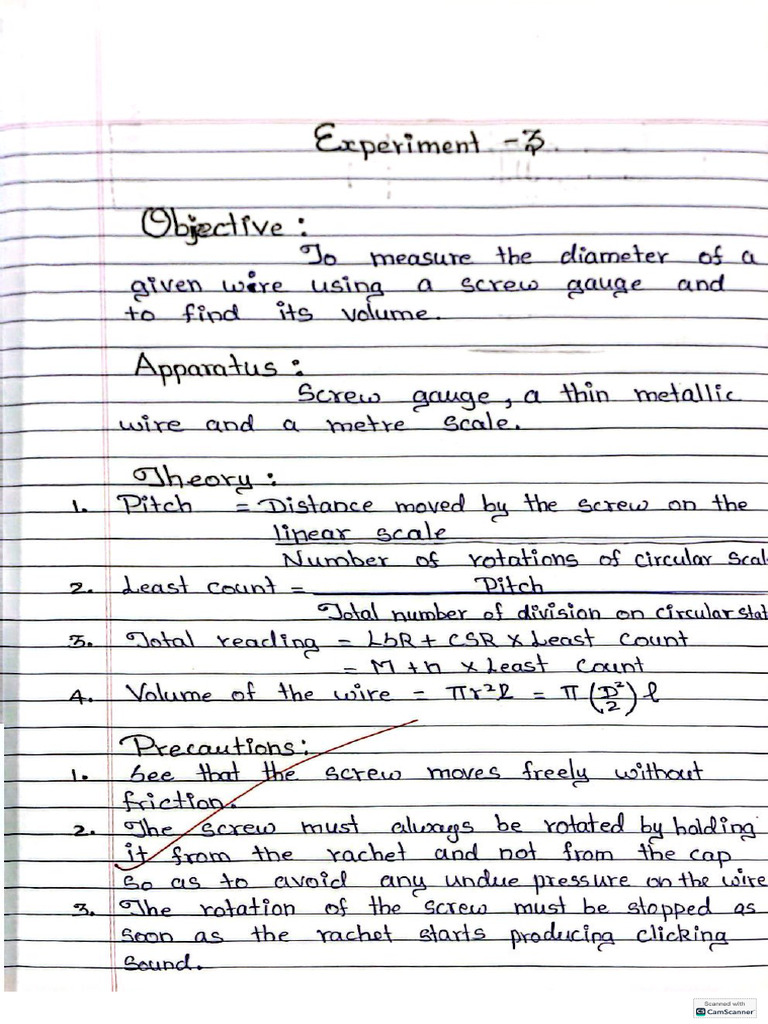 Experiment - 3
Objective :
To measure the diameter of a
given wire using a screw gauge and
to find its volume.
Apparatus :
Screw gauge, a thin metallic
wire and a metre scale.
Theory :
1. Pitch = Distance moved by the screw on the
linear scale
Number of rotations of circular scal
2. Least count = Pitch
Total number of division on circular
3. Total reading = LSR + CSR × Least Count
= M + n × Least Count
4. Volume of the wire = πr²l = π (D/2)² l
Precautions :
1. See that the screw moves freely without
friction.
2. The screw must always be rotated by holding
it from the rachet and not from the cap
so as to avoid any undue pressure on the wire
3. The rotation of the screw must be stopped as
soon as the rachet starts producing clicking
sound.
Scanned with
CS CamScanner